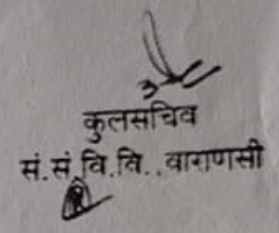 कुलसचिव
सं.सं.वि.वि., वाराणसी